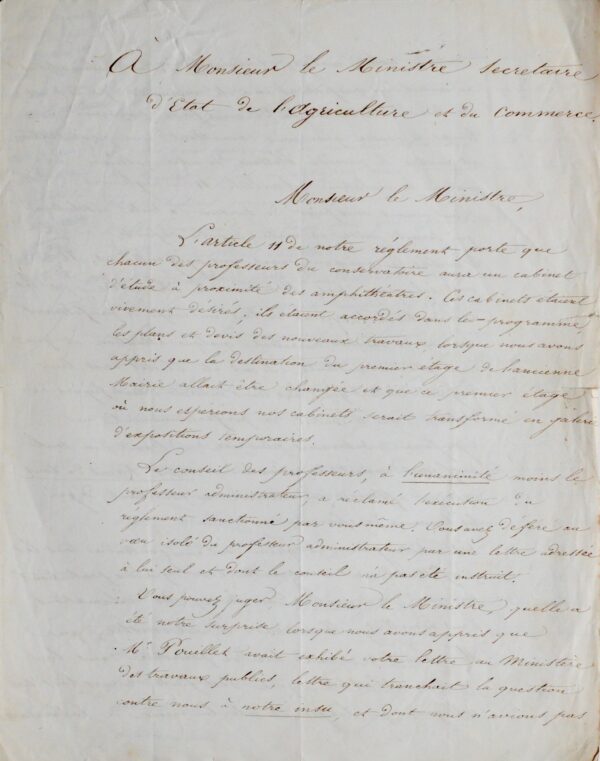 À Monsieur le Ministre secretaire
d'Etat de l'agriculture et du commerce.
Monsieur le Ministre,
L'article 11 de notre réglement porte que
chacun des professeurs du conservatoire aura un cabinet
d'étude à proximité des amphithéatres. Ces cabinets etaient
vivement désirés, ils etaient accordés dans le programme
les plans et devis des nouveaux travaux lorsque nous avons
appris que la destination du premier étage de l'ancienne
Mairie allait être changée et que ce premier étage
où nous esperions nos cabinets serait transformé en galerie
d'expositions temporaires.
Le conseil des professeurs, à l'unanimité moins le
professeur administrateur, a réclamé l'exécution du
réglement sanctionné par vous même. Vous avez deféré au
vœu isolé du professeur administrateur par une lettre adressée
à lui seul et dont le conseil n'a pas été instruit.
Vous pouvez juger, Monsieur le Ministre, quelle a
été notre surprise lorsque nous avons appris que
Mr Pouillet avait exhibé votre lettre au Ministère
des travaux publics, lettre qui tranchait la question
contre nous à notre insu, et dont nous n'avions pas